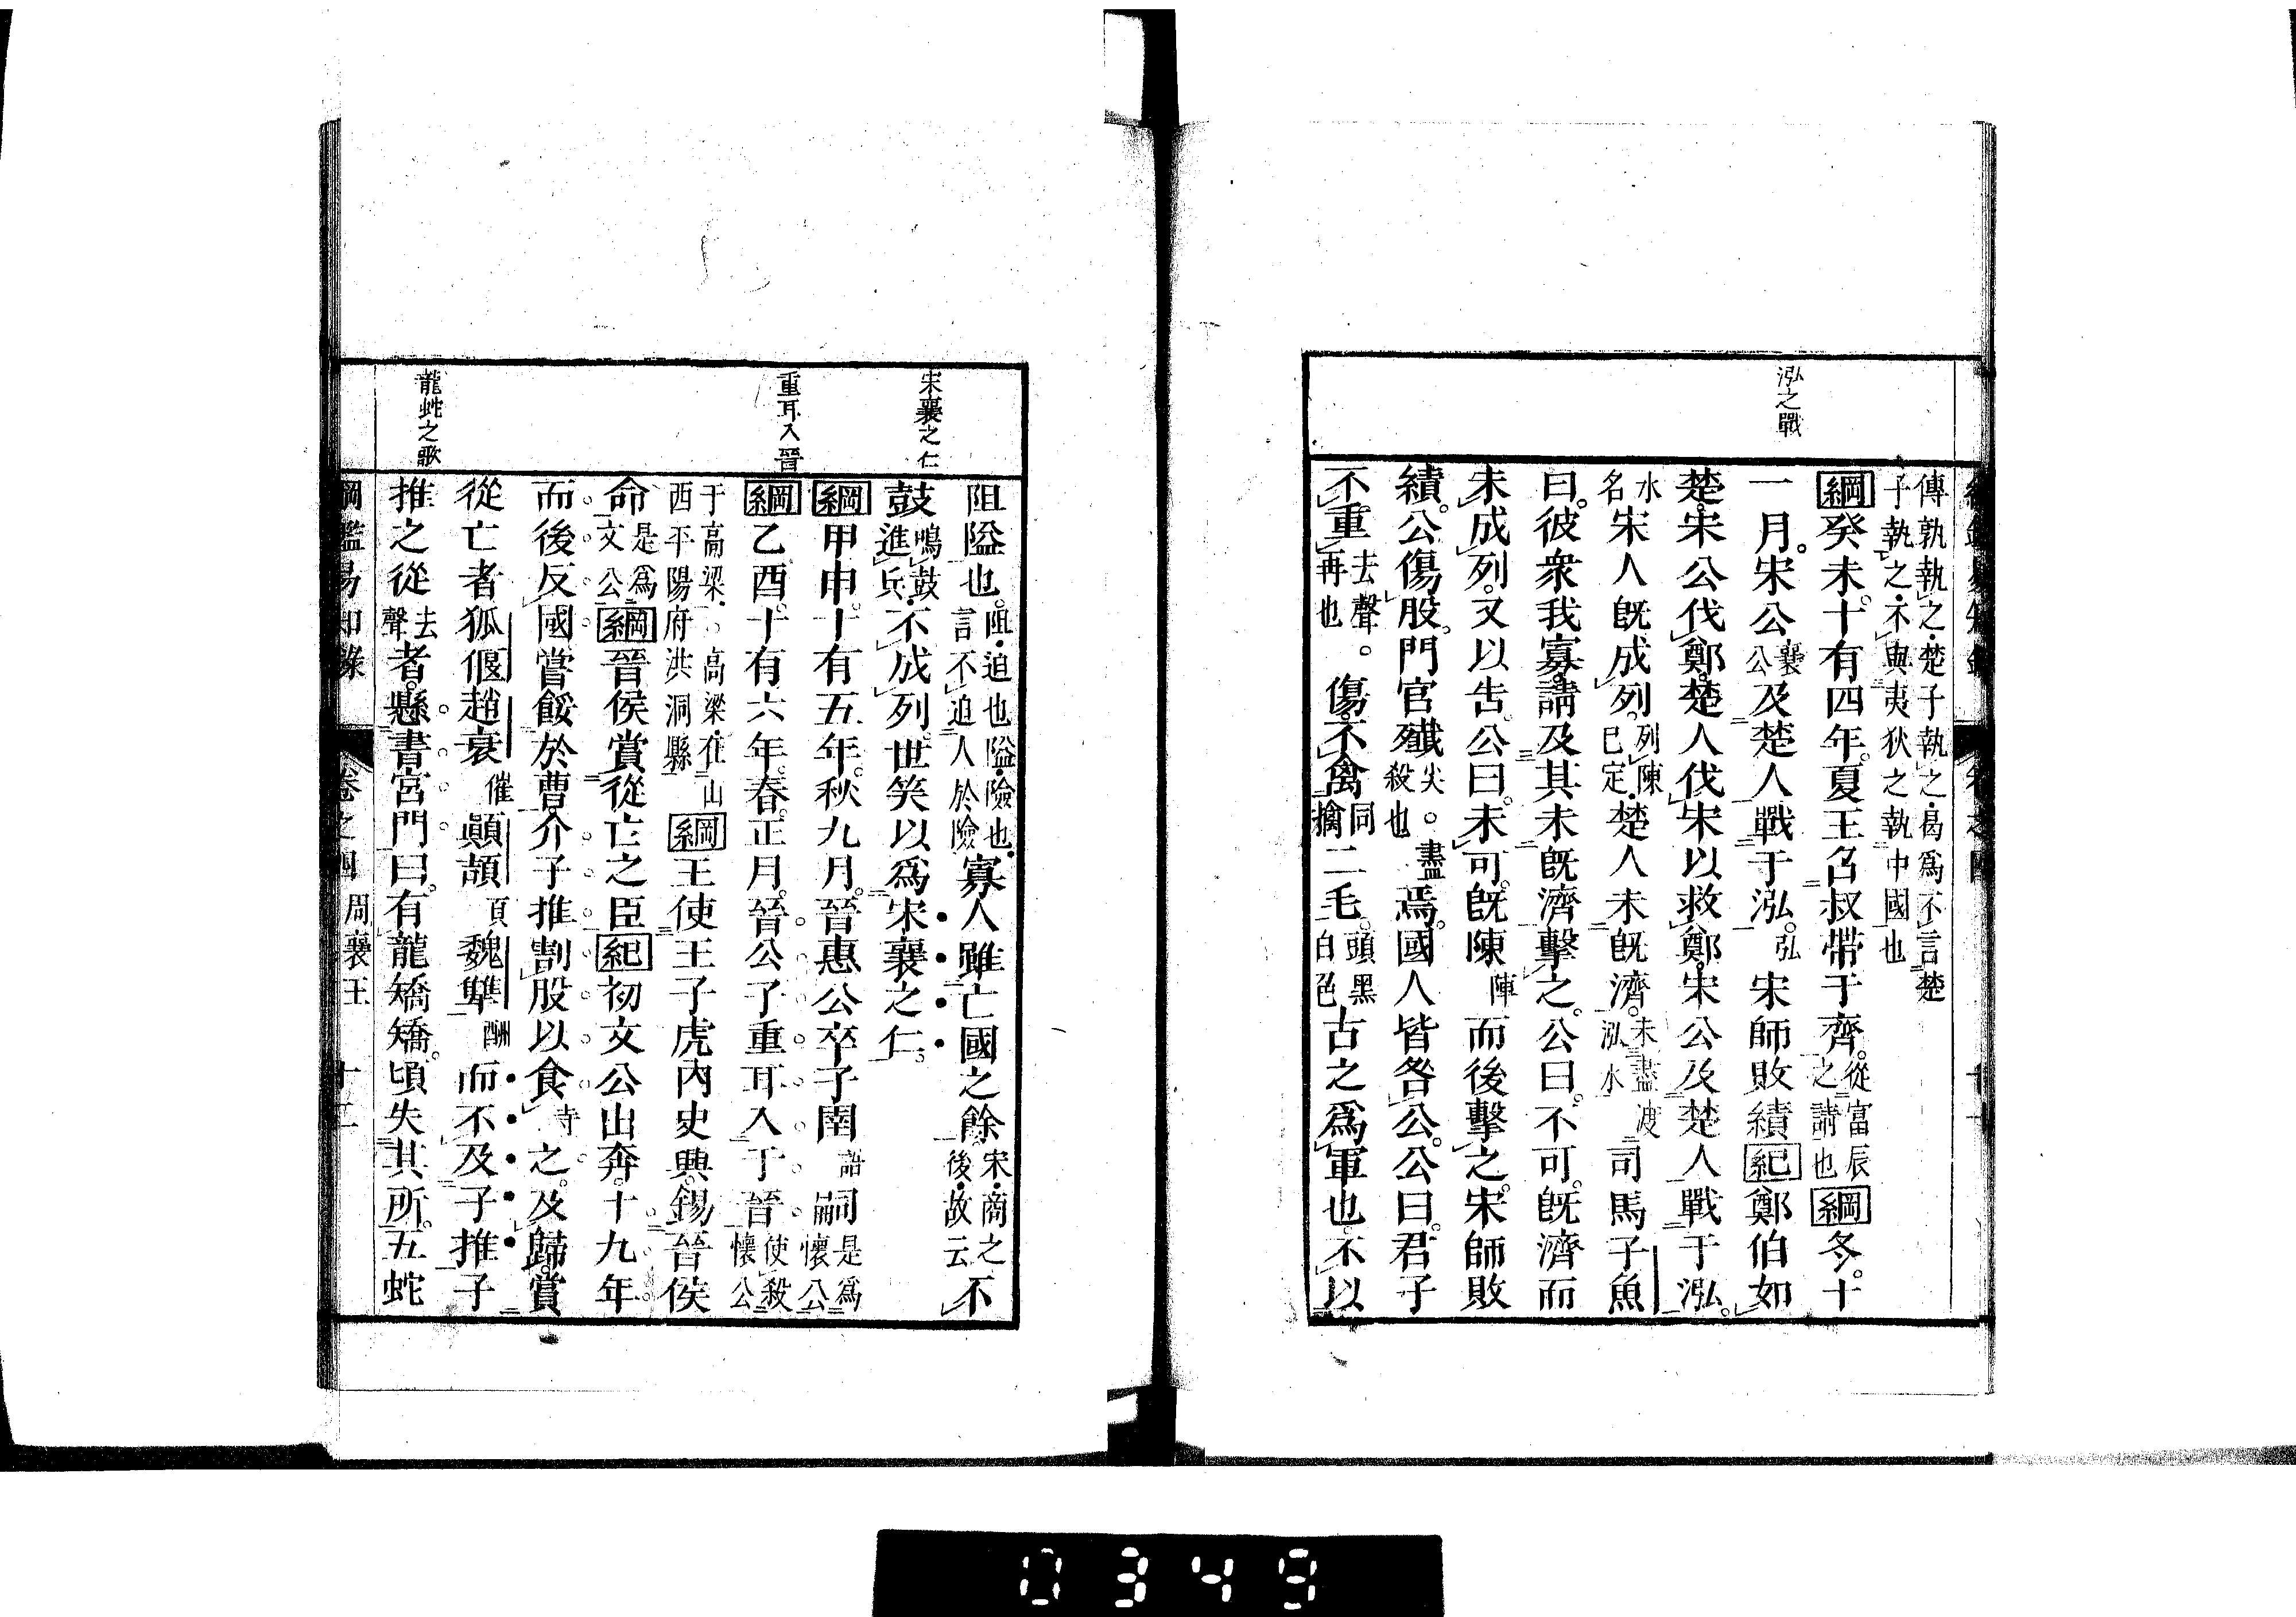 泓之戰
傳執執之楚子執之曷爲不言楚
子執之不與夷狄之執中國也
綱癸未十有四年夏王召叔帶于齊從富辰之請也綱冬十
一月宋公襄公及楚人戰于泓弘宋師敗績紀鄭伯如
楚宋公伐鄭楚人伐宋以救鄭宋公及楚人戰于泓
水名宋人旣成列列陳已定楚人未旣濟未盡渡泓水司馬子魚
曰彼衆我寡請及其未旣濟擊之公曰不可旣濟而
未成列又以告公曰未可旣陳陣而後擊之宋師敗
績公傷股門官殲尖殺也盡焉國人皆咎公公曰君子
不重去聲再也傷不禽同擒二毛頭黑白色古之爲軍也不以
宋襄之仁
重耳入晉
龍蛇之歌
阻隘也阻迫也隘險也言不迫人於險寡人雖亡國之餘宋商之後故云不
鼓鳴鼓進兵不成列世笑以爲宋襄之仁
綱甲申十有五年秋九月晉惠公卒子圉語嗣是爲懷公
綱乙酉十有六年春正月晉公子重耳入于晉使殺懷公
于高梁高梁在山西平陽府洪洞縣綱王使王子虎內史興錫晉侯
命是爲文公綱晉侯賞從亡之臣紀初文公出奔十九年
而後反國嘗餒於曹介子推割股以食寺之及歸賞
從亡者狐偃趙衰催顚頡頁魏犨酬而不及子推子
推之從去聲者懸書宮門曰有龍矯矯頃失其所五蛇
綱鑑易知錄 卷之四 周襄王 十二